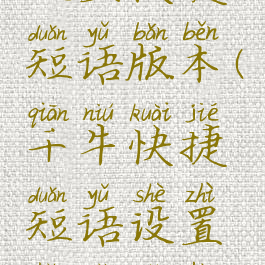 duǎn yǔ bǎn běn
短语版本(
qiān niú kuài jié
千牛快捷
duǎn yǔ shè zhì
短语设置